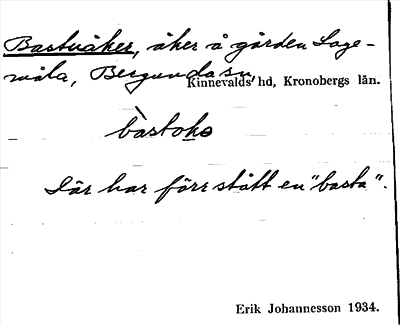 Bastuåker, åker å gården Lage-
måla, Bergunda sn,
Kinnevalds hd, Kronobergs län.
bàstoka
Där har förr stått en "basta".
Erik Johannesson 1934.